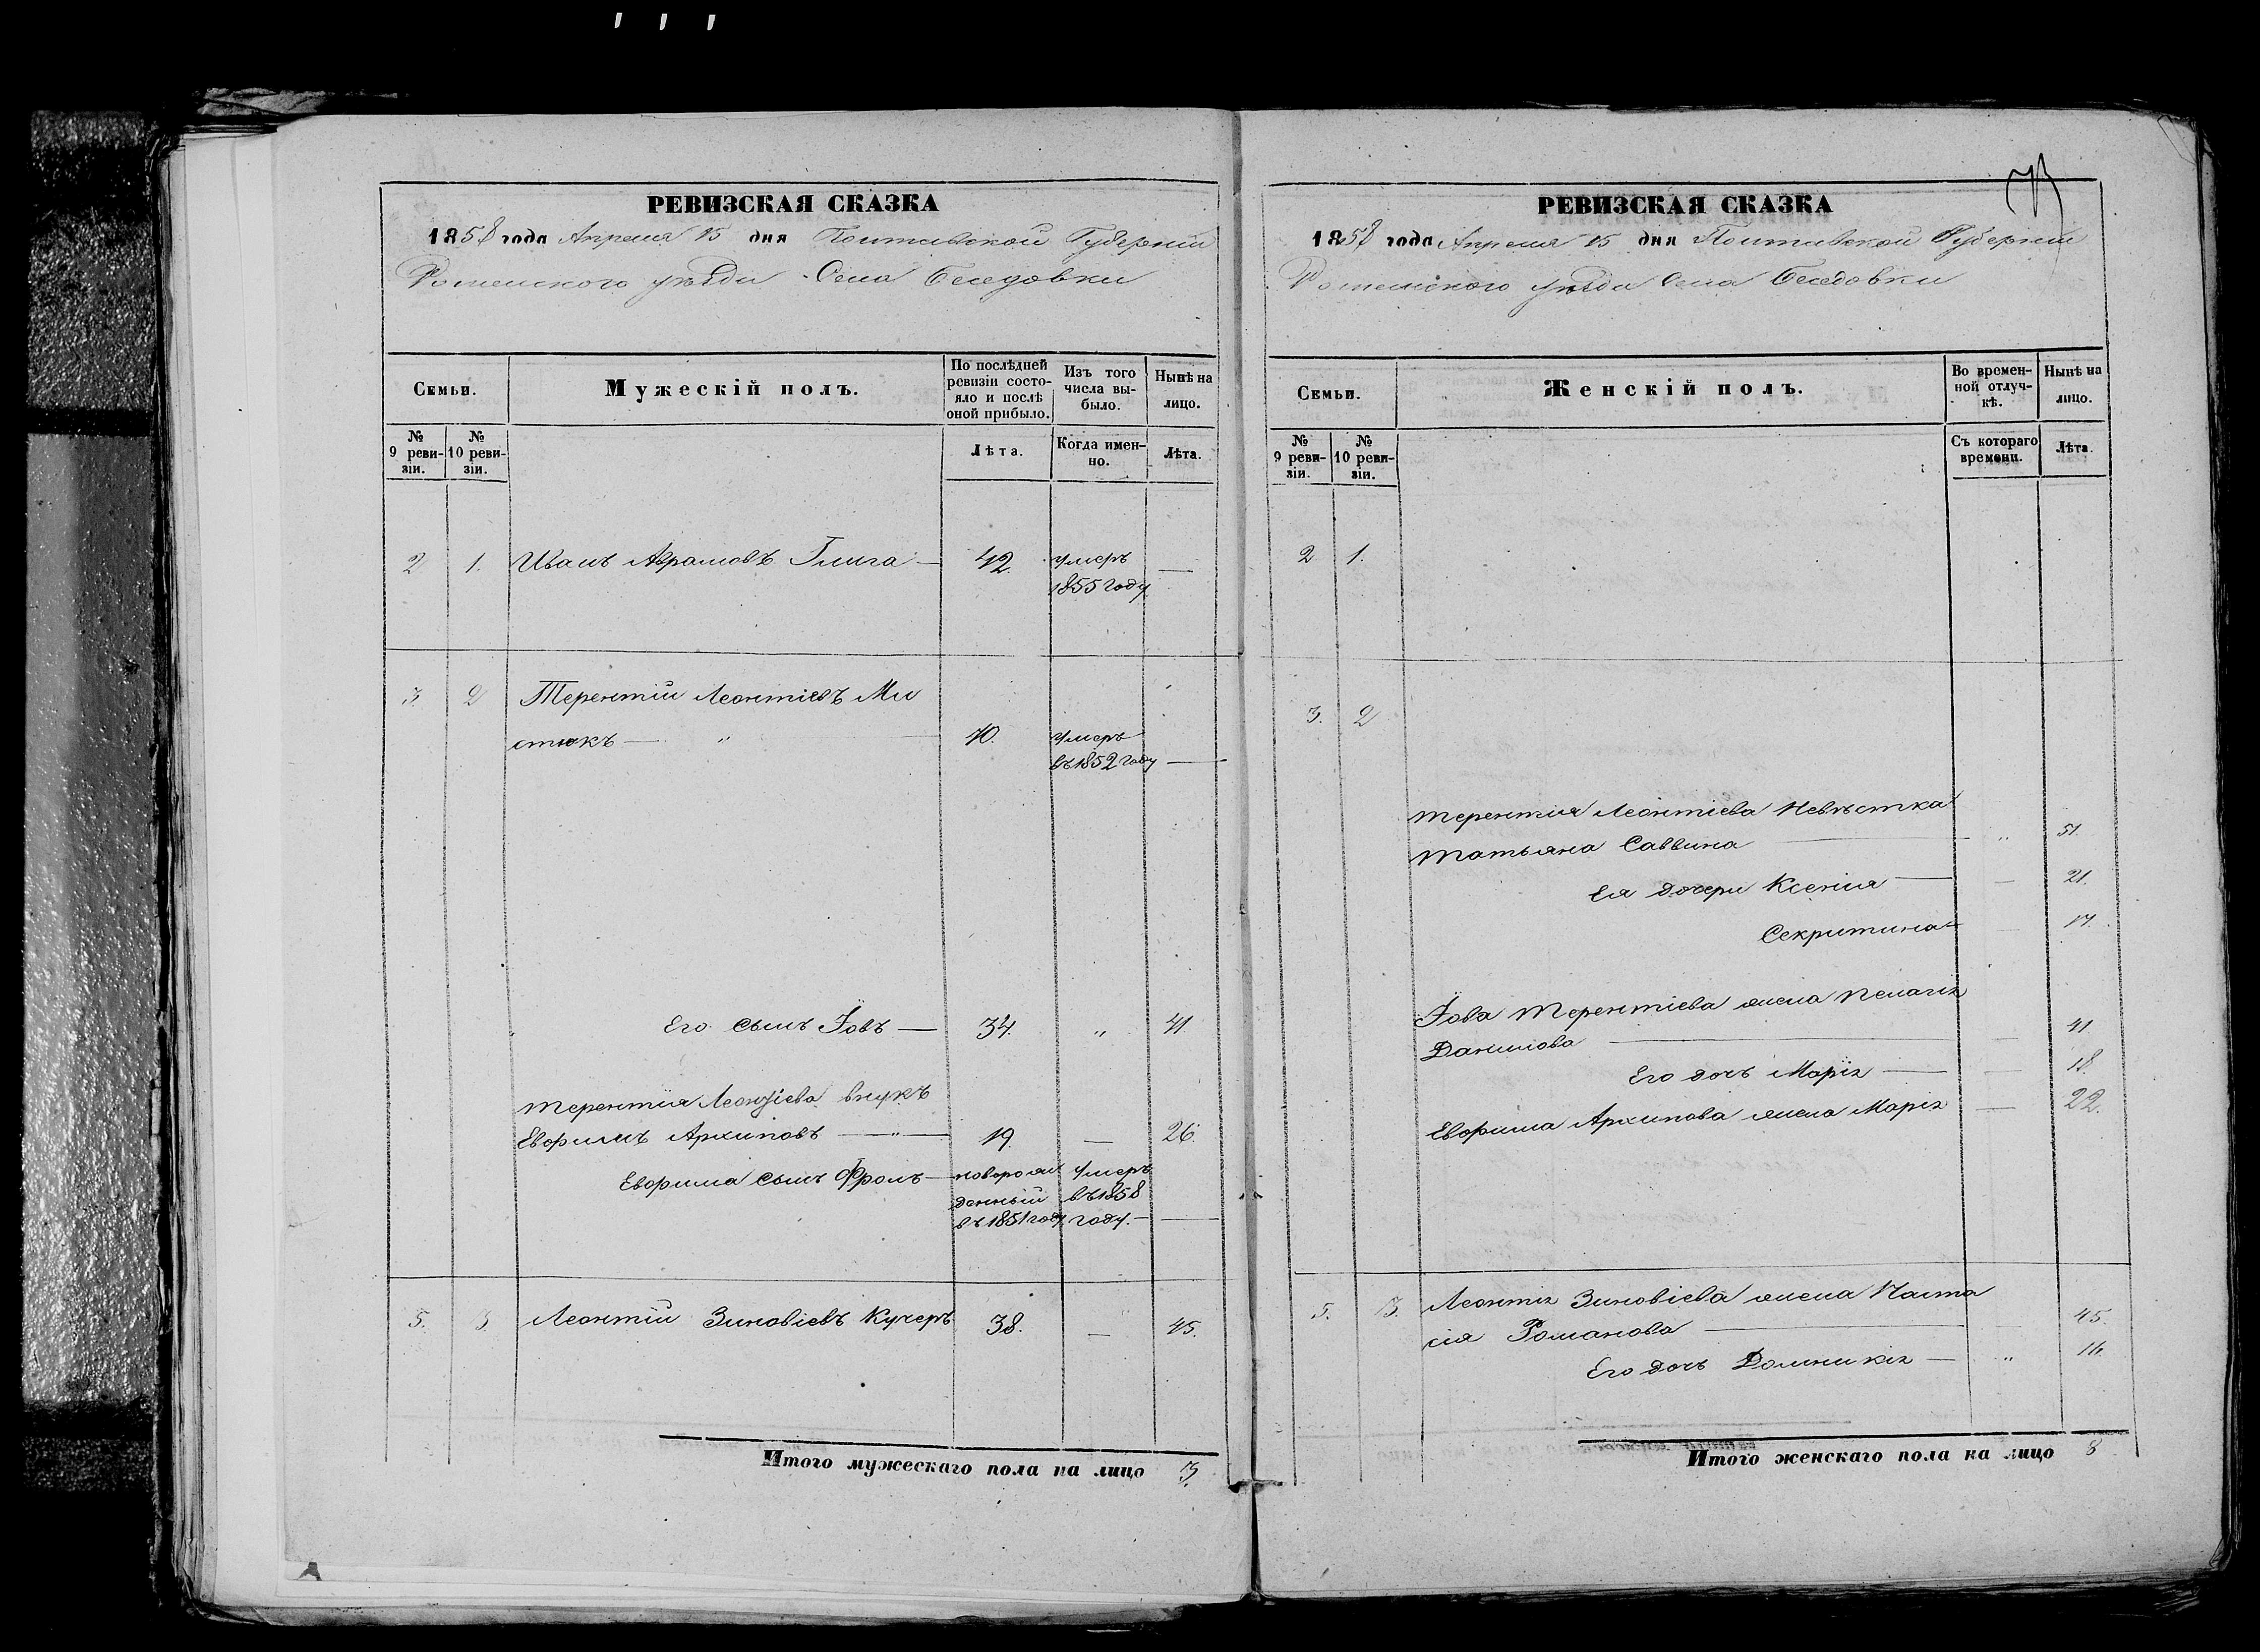 РЕВИЗСКАЯ СКАЗКА
1858 года Апреля 15 дня Полтавской Губерніи
Роменского уѣзда Села Беседовки
Семьи.
Мужескій полъ.
По послѣдней ревизіи состояло и послѣ оной прибыло.
Изъ того числа выбыло.
Нынѣ на лицо.
№ 9 ревизіи.
№ 10 ревизіи.
Лѣта.
Когда именно.
Лѣта.
2 1. Иванъ Аврамовъ Глига — 42. умеръ —
1855 году
3. 2 Терентій Леонтіевъ Ми
стюкъ — " 70. умеръ
въ 1852 году —
Его сынъ Іовъ — 34. " 41
Терентія Леонтіева внукъ
Евфимъ Архиповъ — " — 19. — 26.
Евфима сынъ Фролъ — новорож умеръ
денный въ 1858
въ 1851 году году. — —
5. 3. Леонтій Зиновіевъ Кучеръ 38. — 45.
Итого мужескаго пола на лицо 3.
РЕВИЗСКАЯ СКАЗКА
1858 года Апреля 15 дня Полтавской Губерніи
Роменского уѣзда Села Беседовки
Семьи.
Женскій полъ.
Во временной отлучкѣ.
Нынѣ на лицо.
№ 9 ревизіи.
№ 10 ревизіи.
Съ котораго времени.
Лѣта.
2 1.
3. 2
Терентія Леонтіева невѣстка
Татьяна Саввина — " 51.
Ея дочери Ксенія — — 21.
Секритина — 17.
Іова Терентіева жена Пелагія
Данилова — 41.
Его дочь Марія — — 18.
Евфима Архипова жена Марія — 22.
5. 3. Леонтія Зиновіева жена Наста
сія Романова — 45.
Его дочь Доминикія — " 16.
Итого женскаго пола на лицо 8